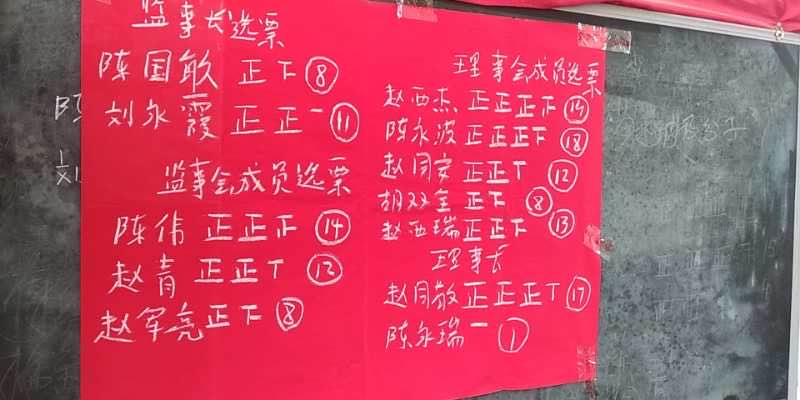 监事长选票
陈国敏 正下 ⑧
刘永霞 正正一 ⑪
监事会成员选票
陈伟 正正正 ⑭
赵青 正正丅 ⑫
赵军亮 正下 ⑧
理事会成员选票
赵西杰 正正正正
陈永波 正正正下 ⑱
赵同安 正正丅 ⑫
胡双全 正下 ⑧
赵西瑞 正正下 ⑬
理事长
赵同敬 正正正丅 ⑰
陈永瑞 一 ①